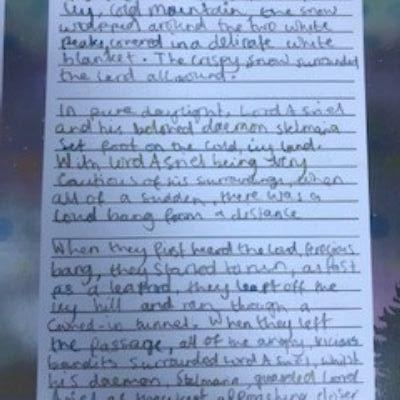 icy cold mountain, the snow
wrapped around the two white
peaks, covered in a delicate white
blanket. The crispy snow surrounded
the land all around.
In pure daylight, Lord Asriel
and his beloved daemon Stelmaria
Set foot on the cold, icy land.
With Lord Asriel being very
Cautious of his surroundings, when
all of a sudden, there was a
loud bang form a distance
When they first heard the loud, ferocious
bang, they started to run, as fast
as a leapord, they leapt off the
icy hill and ran through a
caved-in tunnel. When they left
the passage, all of the angry, vicious
bandits surrounded Lord Asriel, whilst
his daemon, Stelmaria, guarded Lord
Asriel as they kept approaching closer